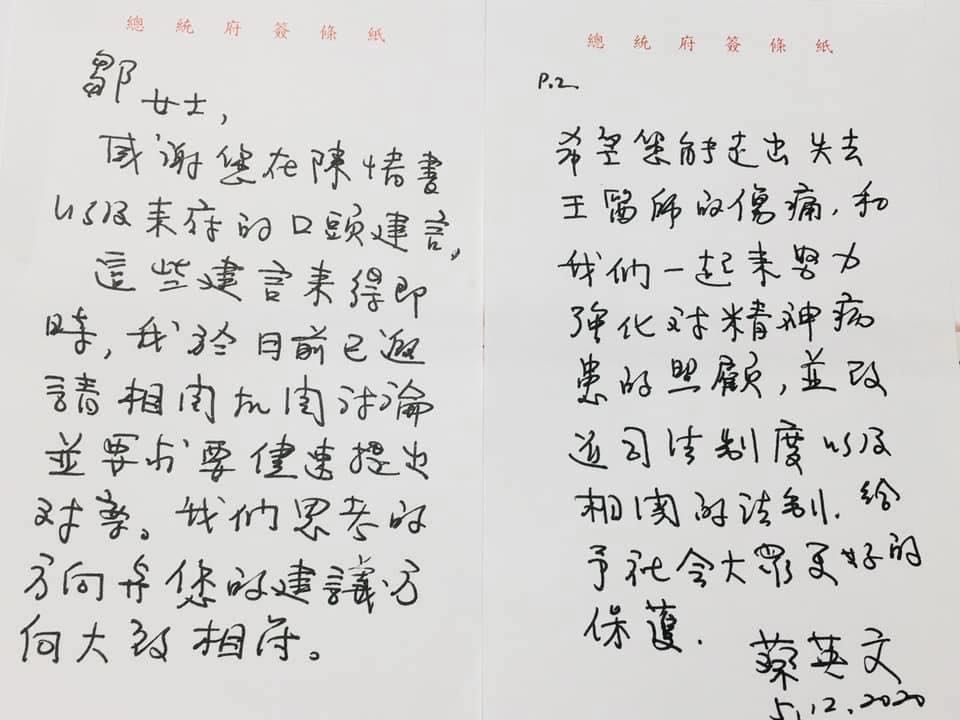 總統府簽條紙
鄒女士，
感謝您在陳情書
以及來府的口頭建言，
這些建言來得即
時，我於目前已邀
請相関机関討論
並要求要儘速提出
对案。我们思考的
方向与您的建議方
向大致相符。
總統府簽條紙
P.2
希望您能走出失去
王醫師的傷痛，和
我们一起來努力
強化对精神病
患的照顧，並改
進司法制度以及
相関的法制，給
予社会大眾更好的
保護．
蔡英文
5.12.2020